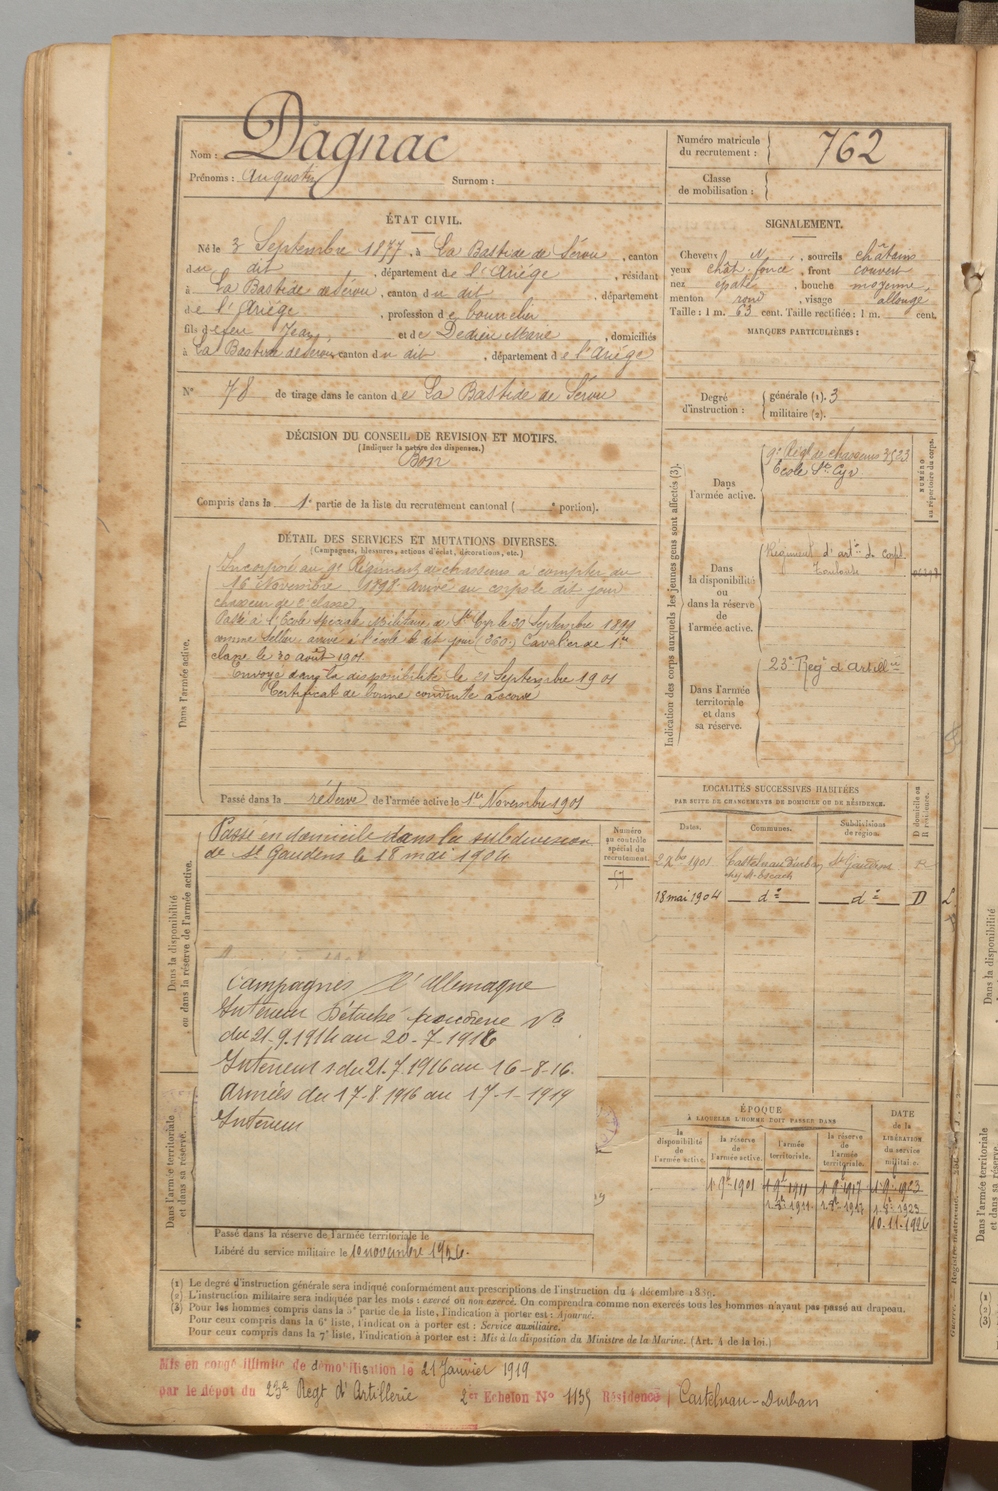 Nom : Dagnac
Prénoms : Augustin Surnom :
Numéro matricule du recrutement : 762
Classe de mobilisation :
ÉTAT CIVIL.
Né le 3 Septembre 1877, à La Bastide de Sérou, canton
du dit, département de l'Ariège, résidant
à La Bastide de Sérou, canton du dit, département
de l'Ariège, profession de boucher
fils de feu Jean et de Dedieu Marie, domiciliés
à La Bastide de Sérou canton du dit, département de l'Ariège
N° 78 de tirage dans le canton de La Bastide de Sérou
SIGNALEMENT.
Cheveux N, sourcils châtains
yeux chât. foncé, front couvert
nez épaté, bouche moyenne,
menton rond, visage allongé
Taille : 1 m. 63 cent. Taille rectifiée : 1 m. cent.
MARQUES PARTICULIÈRES :
Degré d'instruction : générale (1). 3
militaire (2).
DÉCISION DU CONSEIL DE REVISION ET MOTIFS.
(Indiquer la nature des dispenses.)
Bon
Compris dans la 1e partie de la liste du recrutement cantonal ( e portion).
DÉTAIL DES SERVICES ET MUTATIONS DIVERSES.
(Campagnes, blessures, actions d'éclat, décorations, etc.)
Dans l'armée active.
Incorporé au 9e Régiment de chasseurs à compter du
16 Novembre 1898 arrivé au corps le dit jour
chasseur de 2e classe.
Passé à l'Ecole spéciale Militaire de St Cyr le 20 Septembre 1899
comme sellier, arrivé à l'école le dit jour (360) Cavalier de 1re
classe le 30 août 1901
Envoyé dans la disponibilité le 21 Septembre 1901
Certificat de bonne conduite accordé
Passé dans la réserve de l'armée active le 1er Novembre 1901
Indication des corps auxquels les jeunes gens sont affectés (3).
NUMÉRO au répertoire du corps.
Dans l'armée active.
9e Régt de chasseurs 3523
Ecole St Cyr
Dans la disponibilité ou dans la réserve de l'armée active.
Régiment d'artie de corps
Toulouse
Dans l'armée territoriale et dans sa réserve.
23e Regt d'artillie
LOCALITÉS SUCCESSIVES HABITÉES
PAR SUITE DE CHANGEMENTS DE DOMICILE OU DE RÉSIDENCE.
Dates. Communes. Subdivisions de région. D domicile ou R résidence.
2 Xbre 1901 Castelnau Durban St Gaudens R
18 mai 1904 do do D
Dans la disponibilité ou dans la réserve de l'armée active.
Passé en domicile dans la subdivision
de St Gaudens le 18 mai 1904
Numéro au contrôle spécial du recrutement.
57
Campagnes c/ l'Allemagne
Intérieur Détaché
du 21-9-1914 au 20-7-1916
Intérieur du 21.7.1916 au 16-8-16.
Armées du 17-8 1916 au 17-1-1919
Intérieur
Dans l'armée territoriale et dans sa réserve.
ÉPOQUE
À LAQUELLE L'HOMME DOIT PASSER DANS
la disponibilité de l'armée active. la réserve de l'armée active. l'armée territoriale. la réserve de l'armée territoriale. DATE de la LIBÉRATION du service militaire.
1 9e 1901 1 9e 1911 1 9e 1917 1 9e 1923
10.11.1926
Passé dans la réserve de l'armée territoriale le
Libéré du service militaire le 10 novembre 1926.
(1) Le degré d'instruction générale sera indiqué conformément aux prescriptions de l'instruction du 4 décembre 1889.
(2) L'instruction militaire sera indiquée par les mots : exercé ou non exercé. On comprendra comme non exercés tous les hommes n'ayant pas passé au drapeau.
(3) Pour les hommes compris dans la 5e partie de la liste, l'indication à porter est : Ajourné.
Pour ceux compris dans la 6e liste, l'indication à porter est : Service auxiliaire.
Pour ceux compris dans la 7e liste, l'indication à porter est : Mis à la disposition du Ministre de la Marine. (Art. 4 de la loi.)
Mis en congé illimité de démobilisation le 21 Janvier 1919
par le dépôt du 23e Regt d'Artillerie 2er Echelon No 1135 Résidence Castelnau-Durban